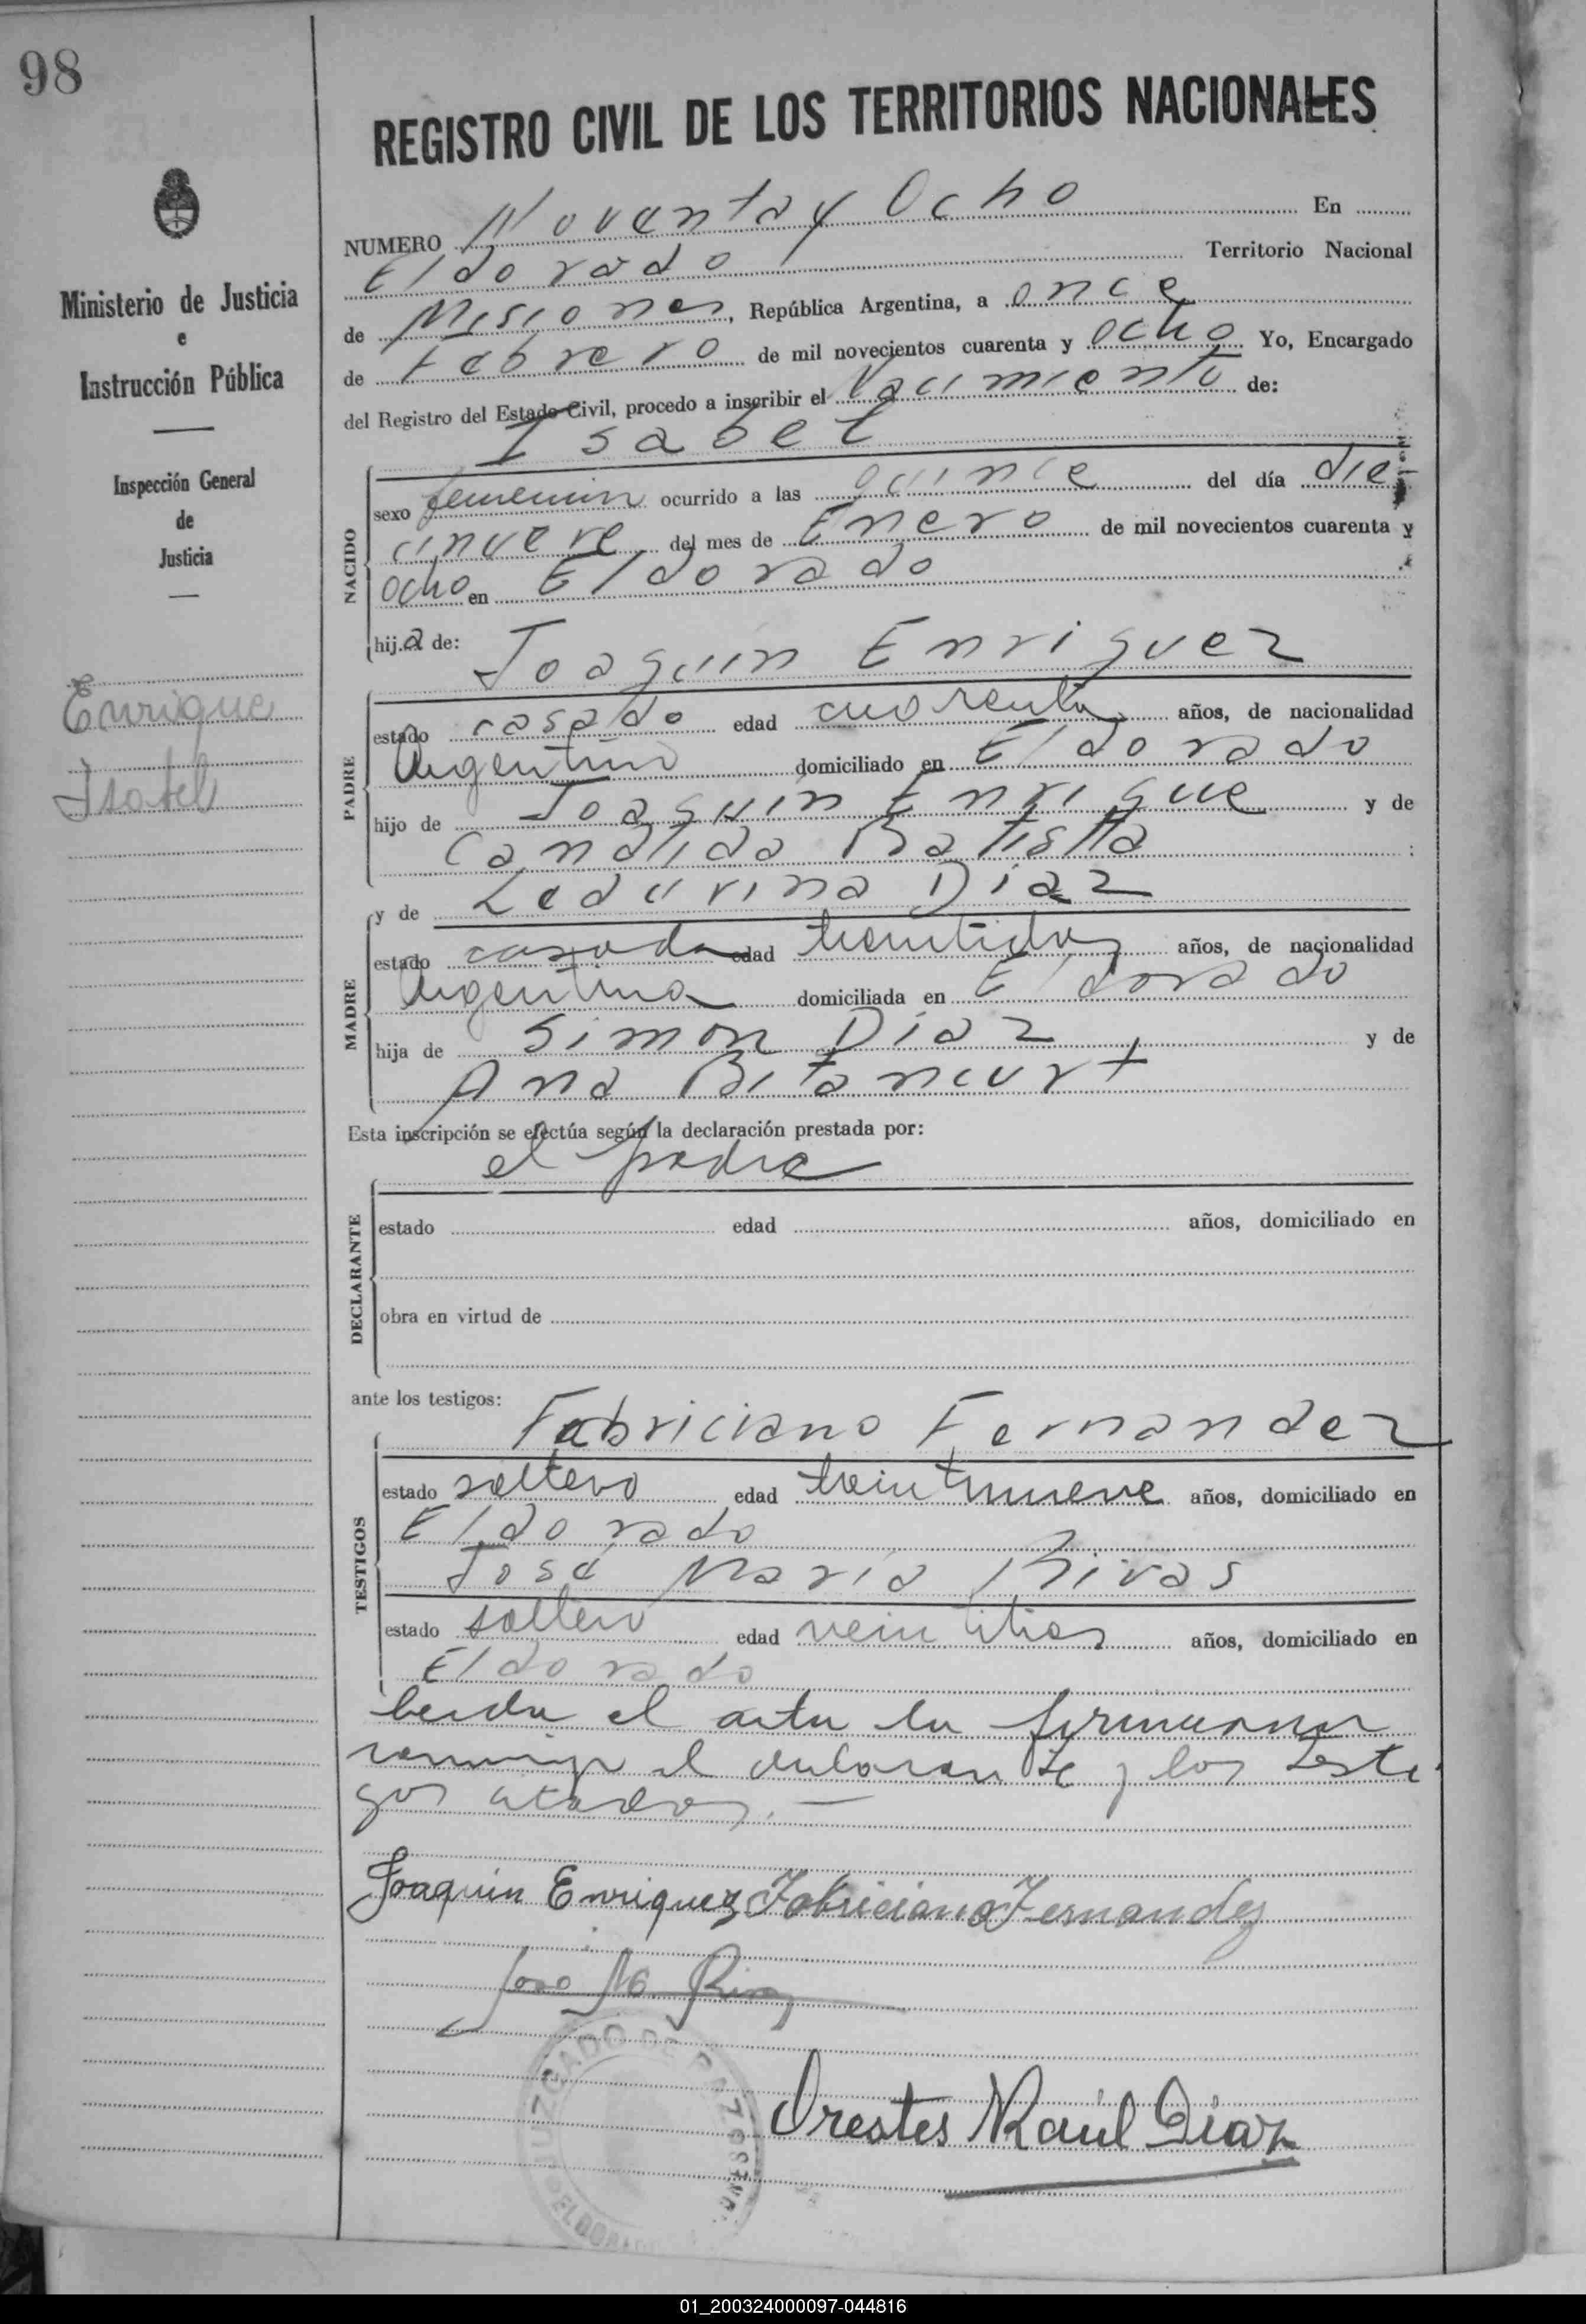 98
REGISTRO CIVIL DE LOS TERRITORIOS NACIONALES
NUMERO Noventa y Ocho En
Eldorado Territorio Nacional
de Misiones, República Argentina, a once
de Febrero de mil novecientos cuarenta y ocho Yo, Encargado
del Registro del Estado Civil, procedo a inscribir el Nacimiento de:
Isabel
Ministerio de Justicia
e
Instrucción Pública
Inspección General
de
Justicia
Enrique
Isabel
NACIDO
sexo femenino ocurrido a las quince del día die
cinueve del mes de Enero de mil novecientos cuarenta y
ocho en Eldorado
hija de: Joaquín Enriquez
PADRE
estado casado edad cuarenta años, de nacionalidad
Argentino domiciliado en Eldorado
hijo de Joaquín Enrique y de
Candida Batista
y de Ledurina Diaz
MADRE
estado casada edad treintidos años, de nacionalidad
Argentina domiciliada en Eldorado
hija de Simon Diaz y de
Ana Bitancurt
Esta inscripción se efectúa según la declaración prestada por:
el padre
DECLARANTE
estado edad años, domiciliado en
obra en virtud de
ante los testigos:
Fabriciano Fernandez
TESTIGOS
estado soltero edad treintinueve años, domiciliado en
Eldorado
José María Rivas
estado soltero edad veintitres años, domiciliado en
Eldorado
leida el acta la firmaron
conmigo el declarante y los testi
gos citados.—
Joaquin Enriquez Fabriciano Fernandez
Jose M. Rivas
JUZGADO DE PAZ
ELDORADO
Orestes Raúl Diaz
01_200324000097-044816